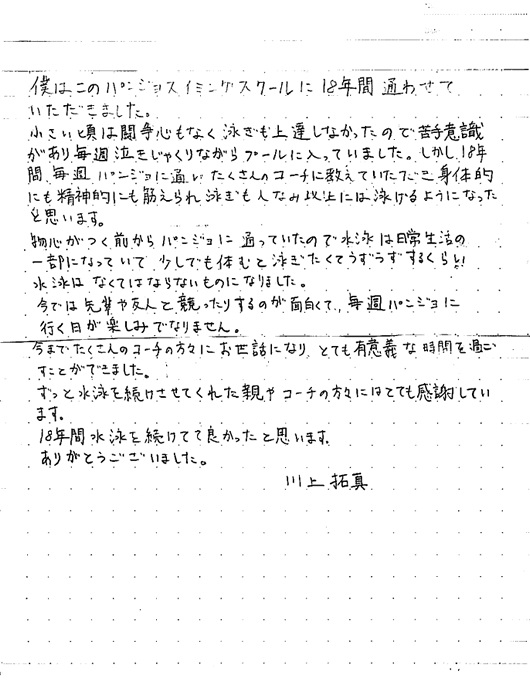 僕はこのパンジョスイミングスクールに18年間通わせて
いただきました。
小さい頃は闘争心もなく泳ぎも上達しなかったので苦手意識
があり毎週泣きじゃくりながらプールに入っていました。しかし18年
間、毎週パンジョに通いたくさんのコーチに教えていただき身体的
にも精神的にも鍛えられ泳ぎも人なみ以上には泳げるようになった
と思います。
物心がつく前からパンジョに通っていたので水泳は日常生活の
一部になっていて少しでも休むと泳ぎたくてうずうずするくらい
水泳はなくてはならないものになりました。
今では先輩や友人と競ったりするのが面白くて、毎週パンジョに
行く日が楽しみでなりません。
今までたくさんのコーチの方々にお世話になり、とても有意義な時間を過ご
すことができました。
ずっと水泳を続けさせてくれた親やコーチの方々にはとても感謝してい
ます。
18年間水泳を続けてて良かったと思います。
ありがとうございました。
川上拓真